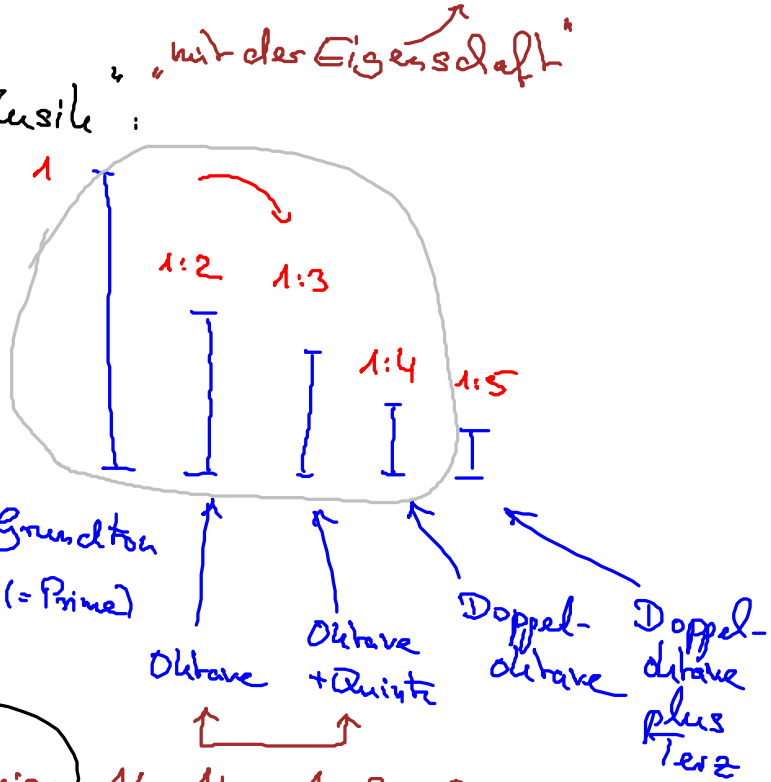 „mit der Eigenschaft"
usik" :
1
1:2
1:3
1:4
1:5
Grundton
(= Prime)
Oktave
Oktave
+Quinte
Doppel-
oktave
Doppel-
oktave
plus
Terz